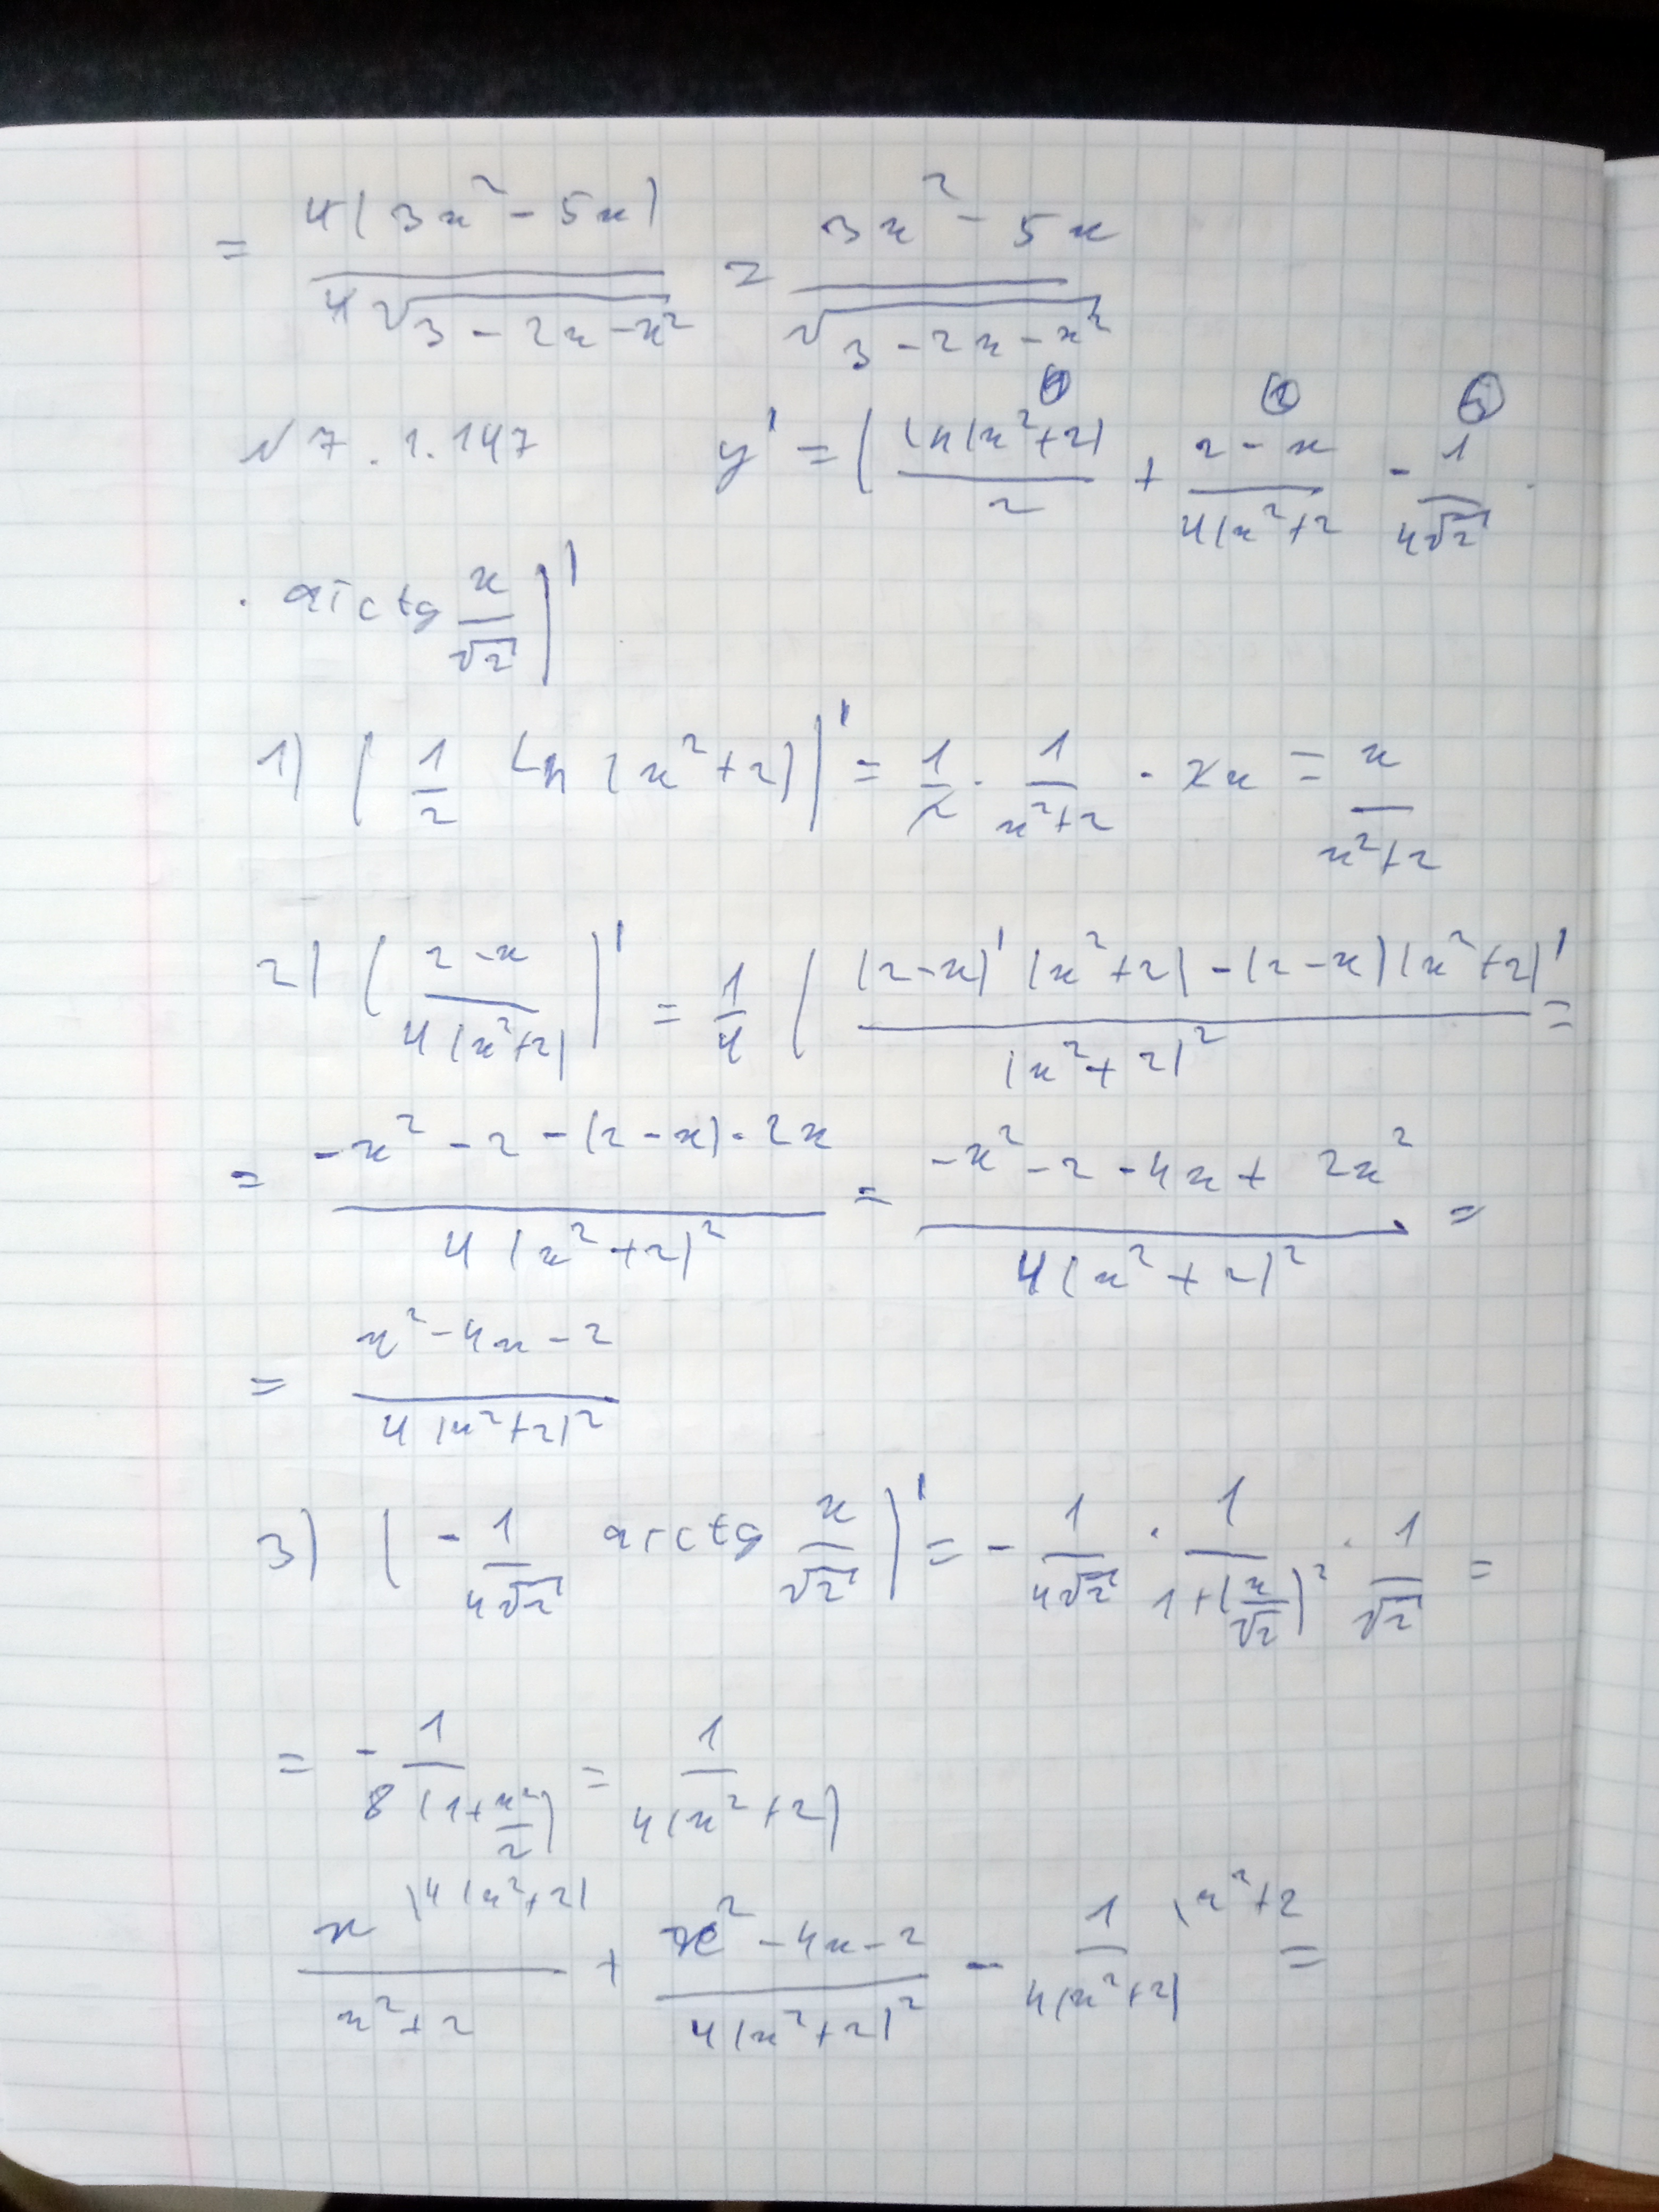 = 4(3x² - 5x) / 4√(3 - 2x - x²) = 3x² - 5x / √(3 - 2x - x²)
№ 7.1.147 y' = ( ln(x²+2) / 2 + 2 - x / 4(x²+2 - 1 / 4√2 ·
· arctg x/√2 )'
1) ( 1/2 ln (x²+2) )' = 1/2 · 1/(x²+2) · 2x = x/(x²+2)
2) ( 2-x / 4(x²+2) )' = 1/4 ( (2-x)' (x²+2) - (2-x)(x²+2)' / (x²+2)² =
= -x² - 2 - (2-x)·2x / 4(x²+2)² = -x² - 2 - 4x + 2x² / 4(x²+2)² =
= x² - 4x - 2 / 4(x²+2)²
3) ( - 1/4√2 arctg x/√2 )' = - 1/4√2 · 1/(1+(x/√2)²) · 1/√2 =
= - 1 / 8(1+x²/2) = 1 / 4(x²+2)
x \4(x²+2) / x²+2 + x² - 4x - 2 / 4(x²+2)² - 1 \x²+2 / 4(x²+2) =